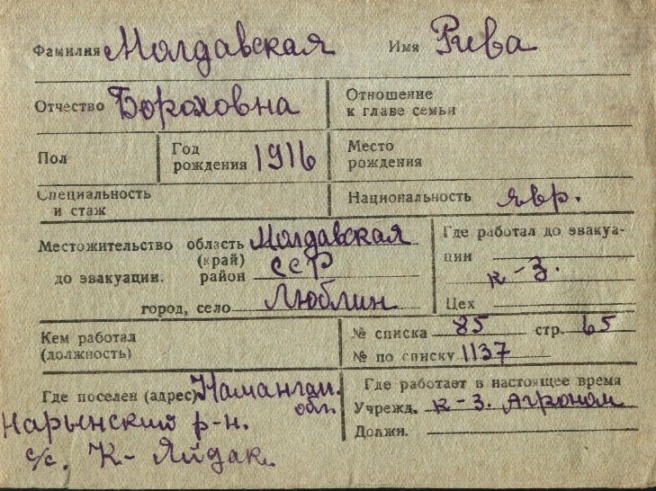 Фамилия Молдавская Имя Рива
Отчество Бороховна Отношение к главе семьи
Пол Год рождения 1916 Место рождения
Специальность и стаж Национальность явр.
Местожительство до эвакуации. область (край) Молдавская
район ССР
город, село Люблин
Где работал до эвакуа-
ции к-з.
Цех
Кем работал (должность)
№ списка 85 стр. 65
№ по списку 1137
Где поселен (адрес) Наманган. обл.
Нарынский р-н.
с/с. К- Яйдак.
Где работает в настоящее время
Учрежд. к-з. Агроном
Должн.